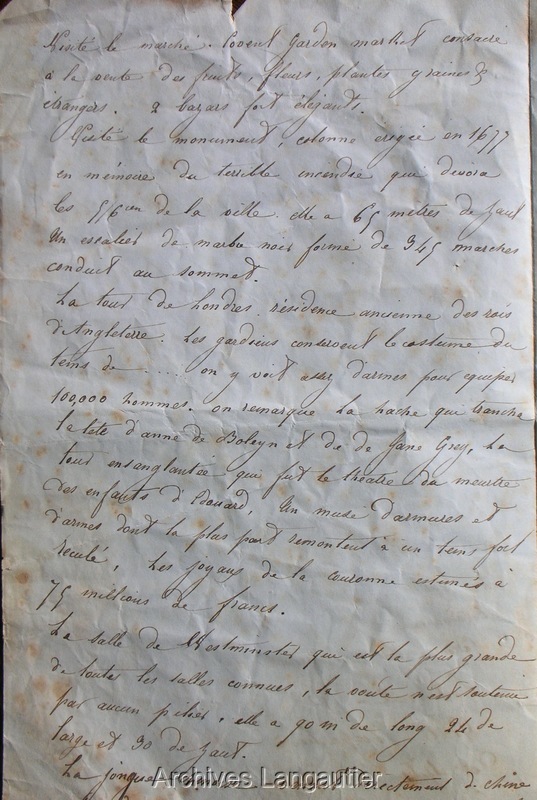 Visité le marché. Covent Garden market consacré
à la vente des fruits, fleurs, plantes graines &
étrangers. 2 bazars fort élégants.
Visité le monument, colonne érigée en 1677
en mémoire du terrible incendie qui dévora
les 5/6 en de la ville. elle a 65 mètres de haut
Un escalier de marbre noir formé de 345 marches
conduit au sommet.
La tour de Londres. résidence ancienne des rois
d'Angleterre. Les gardiens conservent le costume du
tems de .... on y voit assez d'armes pour équiper
100,000 hommes. on remarque la hache qui trancha
la tête d'anne de Boleyn et de de Jane Grey, La
tour ensanglantée qui fut le théâtre du meurtre
des enfants d'Edouard, Un musé d'armures et
d'armes dont la plus part remontent à un tems fort
reculé, Les joyaux de la couronne estimés à
75 millions de francs.
La salle de Westminster qui est la plus grande
de toutes les salles connues, la voute n'est soutenue
par aucun pilier, elle a 90 m de long 24 de
large et 30 de haut.
La jonque directement de chine
Archives Langautier